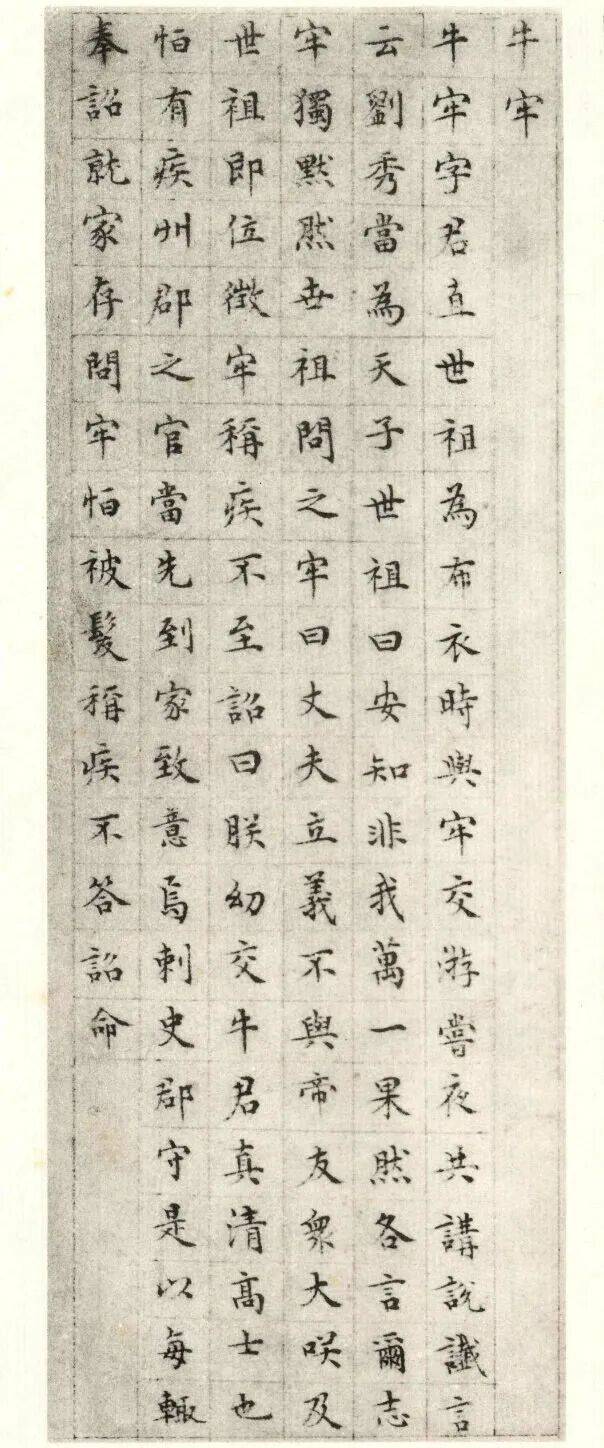 牛牢
牛牢字君直世祖為布衣時與牢交游嘗夜共講說讖言
云劉秀當為天子世祖曰安知非我萬一果然各言爾志
牢獨默然世祖問之牢曰丈夫立義不與帝友眾大咲及
世祖即位徵牢稱疾不至詔曰朕幼交牛君真清高士也
恒有疾州郡之官當先到家致意焉刺史郡守是以每輒
奉詔就家存問牢恒被髮稱疾不答詔命